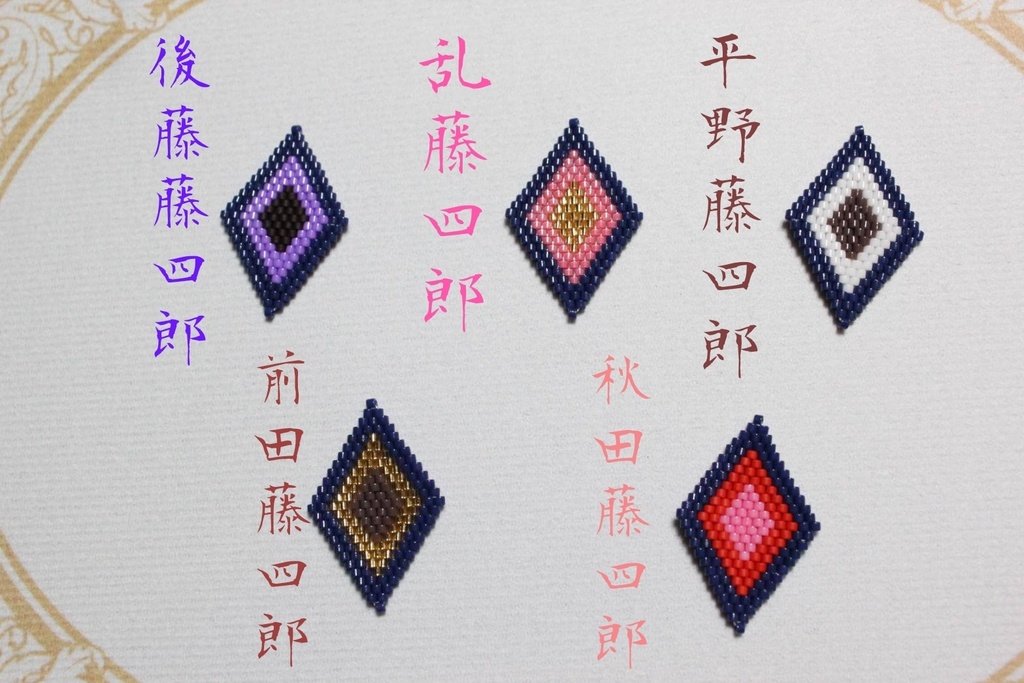 後藤藤四郎
乱藤四郎
平野藤四郎
前田藤四郎
秋田藤四郎